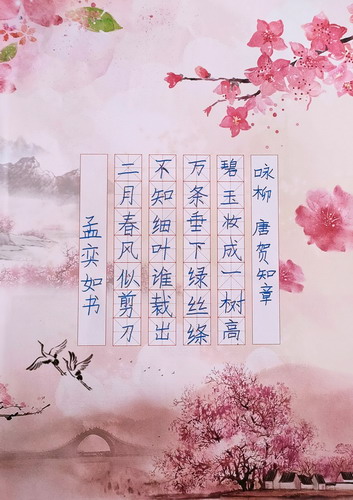 咏柳 唐贺知章
碧玉妆成一树高
万条垂下绿丝绦
不知细叶谁裁出
二月春风似剪刀
孟奕如书